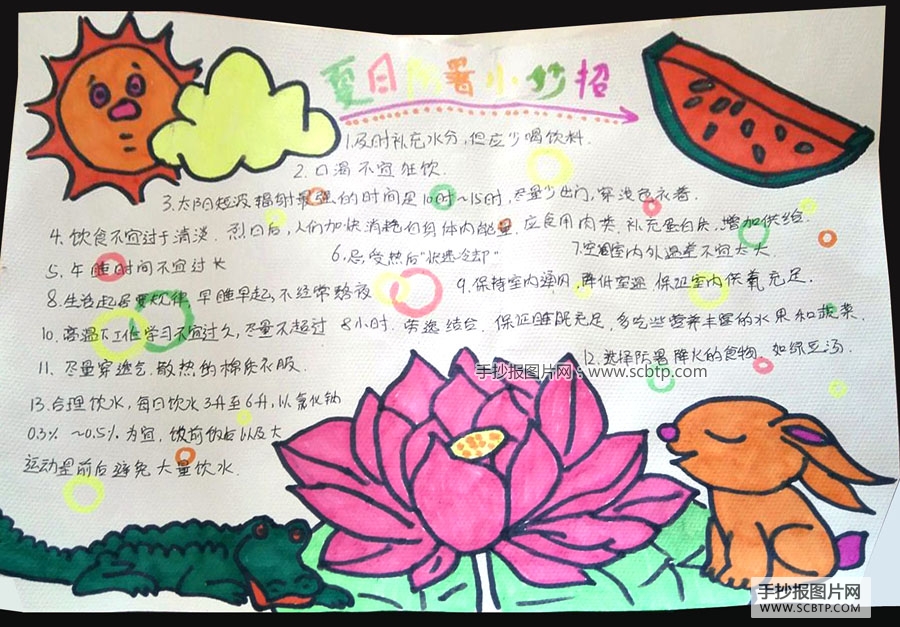 夏日防署小妙招
1.及时补充水分,但应少喝饮料.
2.口渴不宜狂饮.
3.太阳短波辐射最强的时间是10时~15时,尽量少出门,穿浅色衣着.
4.饮食不宜过于清淡.烈日后,人们加快消耗自身体内能量,应食用肉类.补充蛋白质,增加供给.
5.午睡时间不宜过长
6.忌受热后"快速冷却"
7.空调室内外温差不宜太大
8.生活起居要规律 早睡早起,不经常熬夜
9.保持室内通风,降低室温 保证室内供氧充足.
10.高温下工作学习不宜过久,尽量不超过 8小时.劳逸结合.保证睡眠充足,多吃些营养丰富的水果和蔬菜.
11.尽量穿透气.散热的棉质衣服.
12.选择防署降火的食物 如绿豆汤.
手抄报图片网:www.scbtp.com
13.合理饮水,每日饮水3升至6升,以氯化钠
0.3% ~0.5% 为宜,饭前饭后以及大
运动量前后避免大量饮水.
手抄报图片网
www.scbtp.com
手抄报图片网
WWW.SCBTP.COM